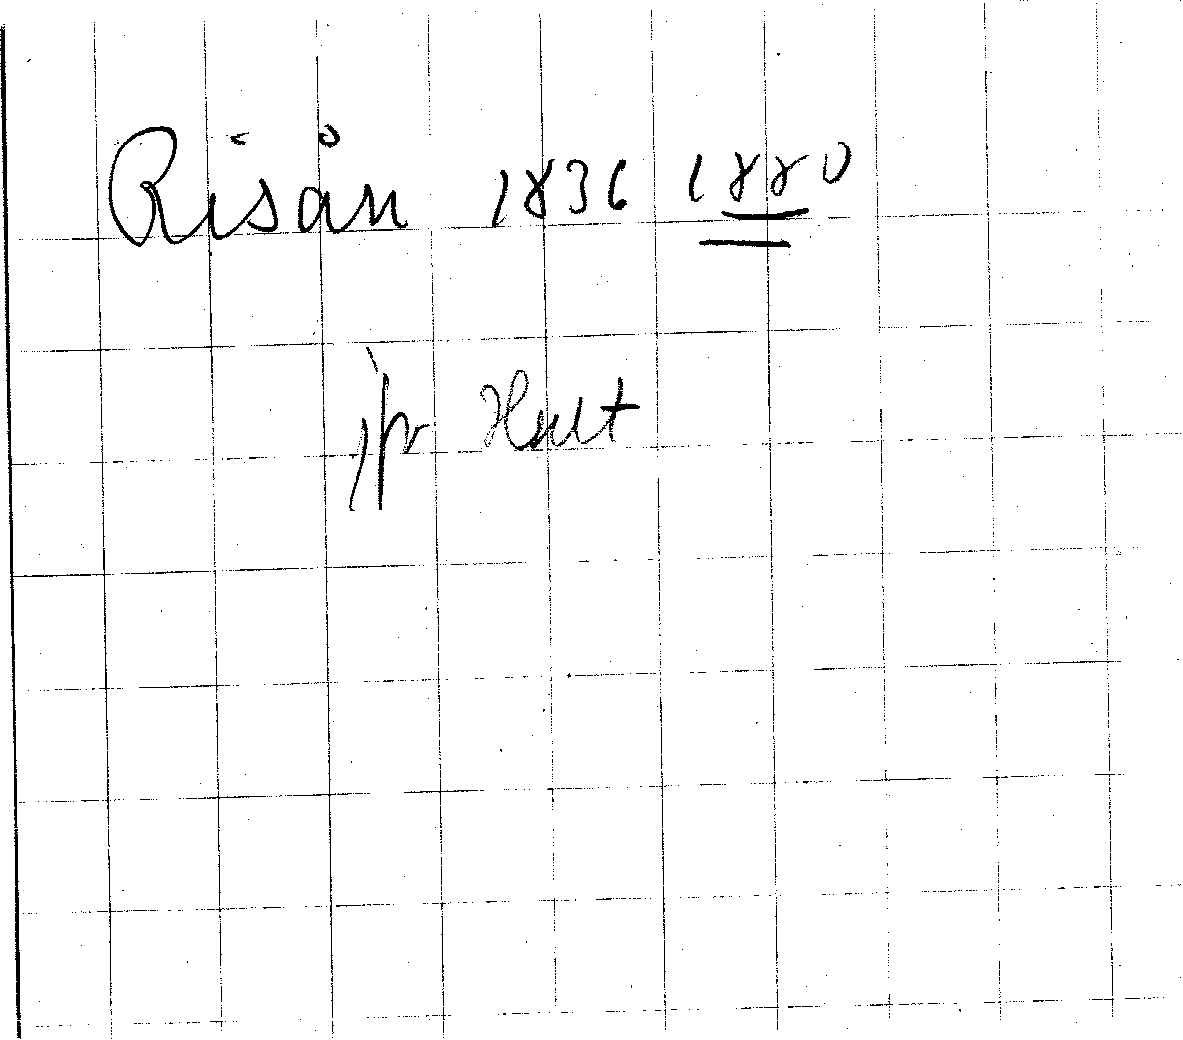 Risån 1836 1880
jfr Hult